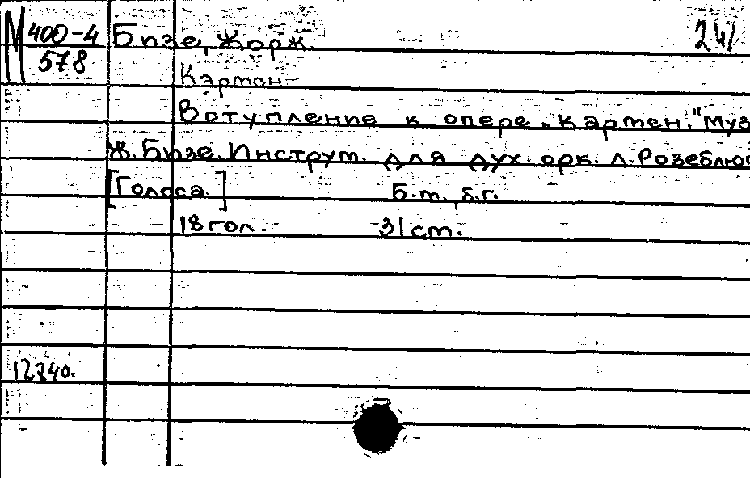 М 400-4 578 Бизе, Жорж. 24/
Кармен
Вступление к опере „Кармен." Муз
Ж. Бизе. Инструм. для дух. орк. Л. Розеблю
[Голоса.] Б.м., б.г.
18 гол. 31 см.
12740.